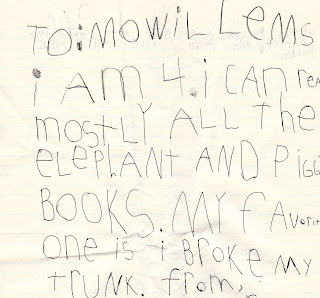 TO: MO WiLLEMS
i AM 4. i CAN REA
mostLY ALL THE
eLePhANT AND PiGG
BOOKS. MY fAvorit
one is i BROKE MY
tRUNK. from,